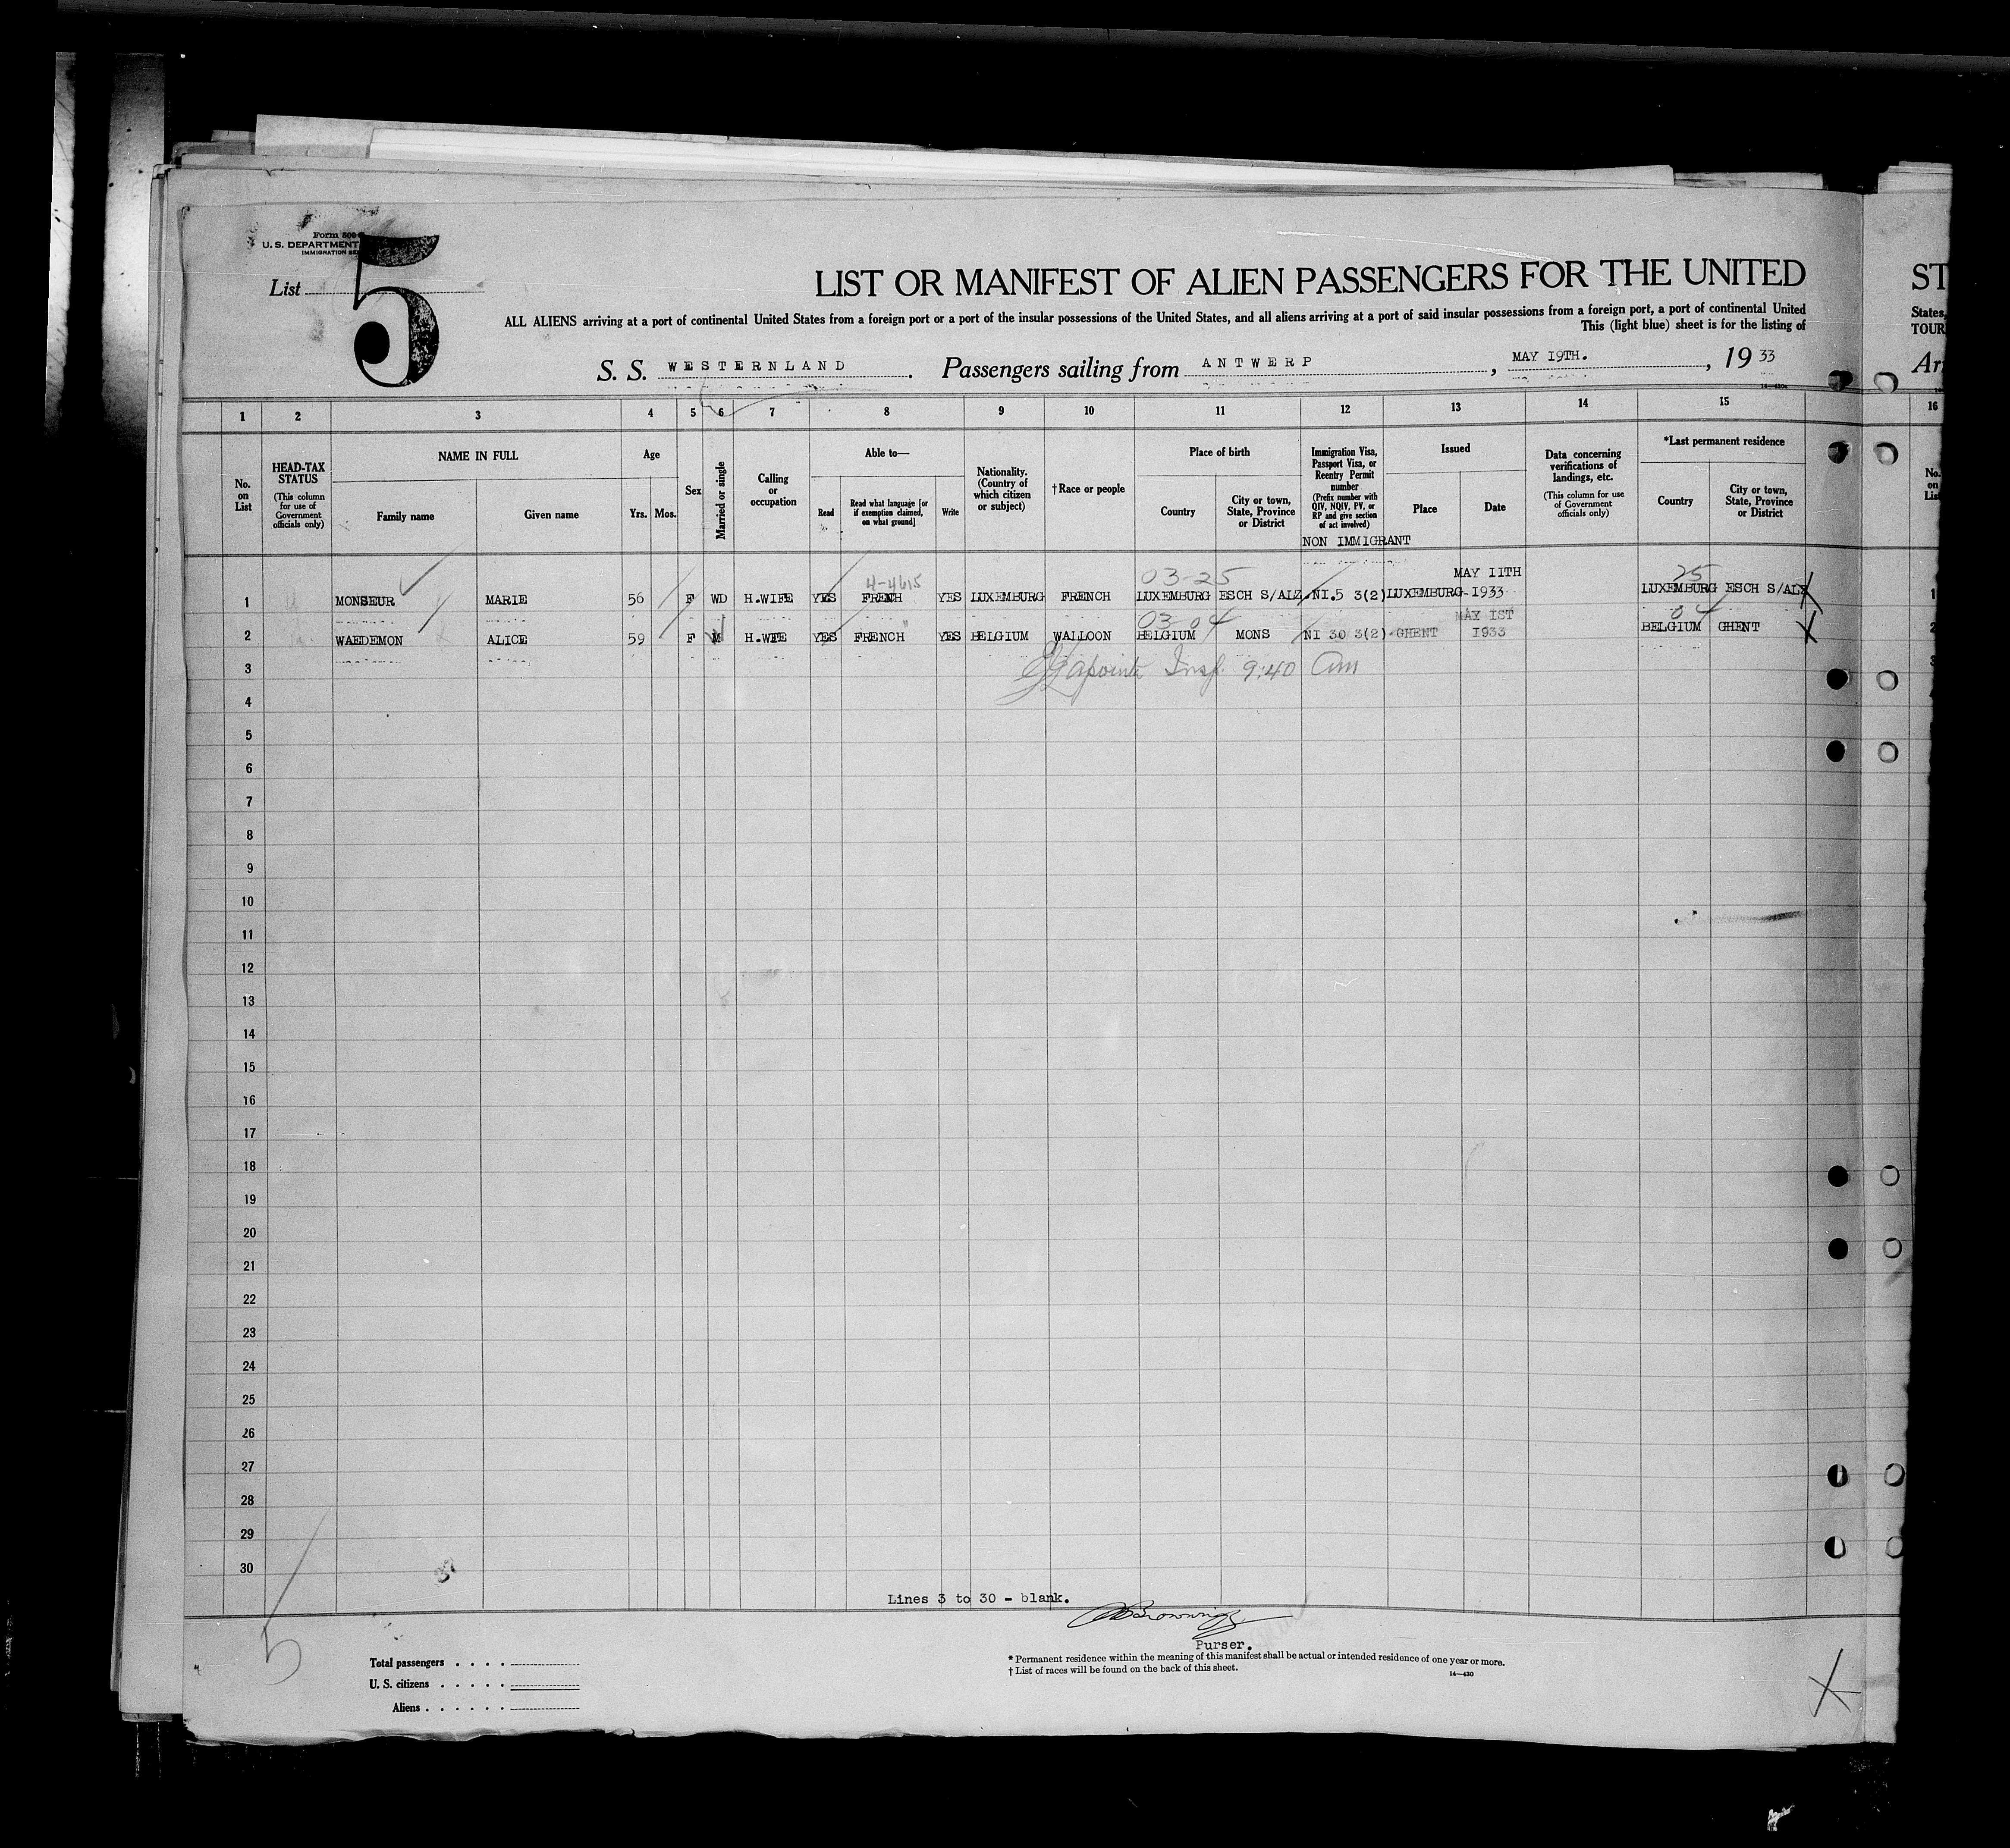 Form 500
U. S. DEPARTMENT
IMMIGRATION SE
List
5
LIST OR MANIFEST OF ALIEN PASSENGERS FOR THE UNITED
ST
ALL ALIENS arriving at a port of continental United States from a foreign port or a port of the insular possessions of the United States, and all aliens arriving at a port of said insular possessions from a foreign port, a port of continental United
States,
This (light blue) sheet is for the listing of
TOUR
S. S. WESTERNLAND. Passengers sailing from ANTWERP, MAY 19TH., 1933
Arr
1 2 3 4 5 6 7 8 9 10 11 12 13 14 15 16
No. on List
HEAD-TAX STATUS
(This column for use of Government officials only)
NAME IN FULL
Family name
Given name
Age
Yrs. Mos.
Sex
Married or single
Calling or occupation
Able to—
Read
Read what language [or if exemption claimed, on what ground]
Write
Nationality. (Country of which citizen or subject)
†Race or people
Place of birth
Country
City or town, State, Province or District
Immigration Visa, Passport Visa, or Reentry Permit number
(Prefix number with QIV, NQIV, PV, or RP and give section of act involved)
NON IMMIGRANT
Issued
Place
Date
Data concerning verifications of landings, etc.
(This column for use of Government officials only)
*Last permanent residence
Country
City or town, State, Province or District
No. on List
4-4615 03-25 MAY 11TH 25
1 MONSEUR MARIE 56 F WD H.WIFE YES FRENCH YES LUXEMBURG FRENCH LUXEMBURG ESCH S/ALZ. NI.5 3(2) LUXEMBURG 1933 LUXEMBURG ESCH S/ALZ 1
03-04 MAY 1ST 04
2 WAEDEMON ALICE 59 F M H.WIFE YES FRENCH YES BELGIUM WALLOON BELGIUM MONS NI 30 3(2) GHENT 1933 BELGIUM GHENT 2
3 Lapointe Insp. 9:40 Am
4
5
6
7
8
9
10
11
12
13
14
15
16
17
18
19
20
21
22
23
24
25
26
27
28
29
30
Lines 3 to 30 - blank.
Browning
Purser.
5
Total passengers
U. S. citizens
Aliens
* Permanent residence within the meaning of this manifest shall be actual or intended residence of one year or more.
† List of races will be found on the back of this sheet.
14—430